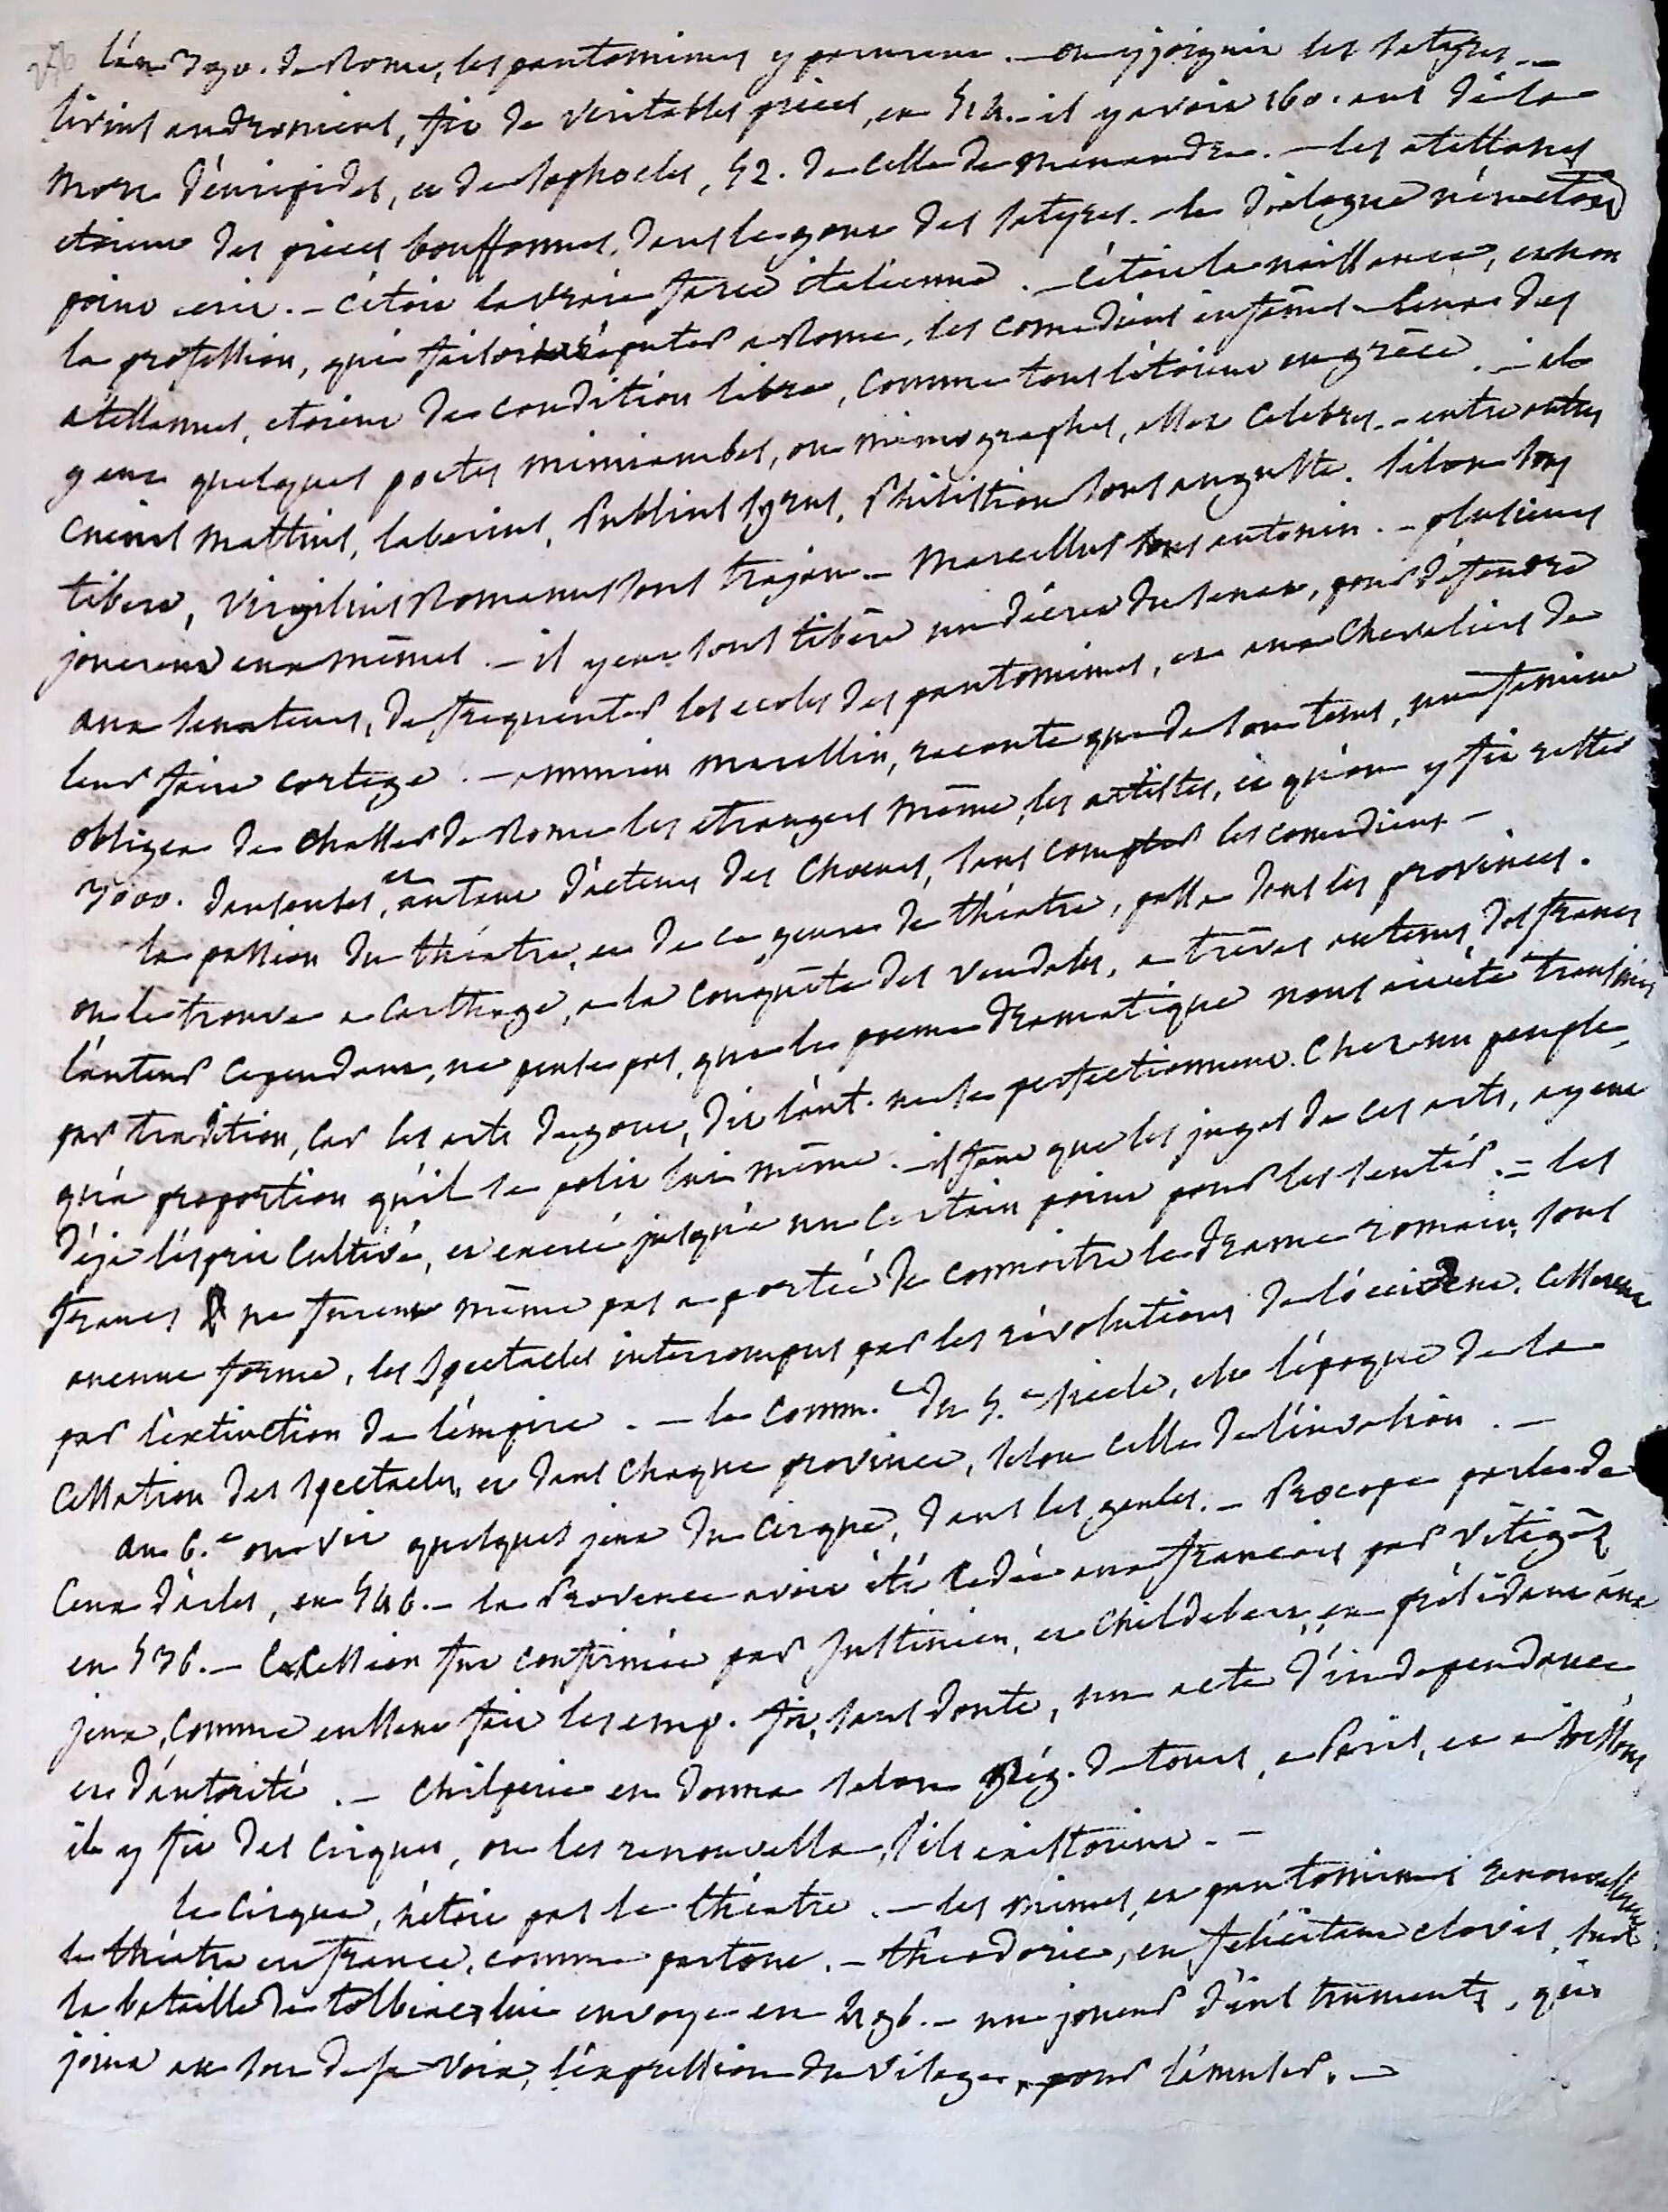 l'an 390. de Rome, les pantomimes y parurent. — on y joignit les satyres. —
livius andronicus, fit de veritables pieces, en 514. — il y avoit 160. ans de la
mort d'euripides, et de sophocles, 52. de celle de menandre. — les atellanes
etoient des pieces bouffonnes, dans le genre des satyres. — le dialogue n'en etoit
point ecrit. — c'étoit la vraie farce italienne. — c'étoit la naissance, et non
la profession, qui faisoit réputer a Rome, les comediens infâmes — ceux des
atellanes, etoient de condition libre, comme tous l'étoient en grèce. — il
y eut quelques poetes mimiambes, ou mimographes, assez celebres. — entre autres
cneius mattius, laberius, Publius Syrus, Philistion sous auguste. silon sous
tibere, virgilius Romanus sous trajan. — Marcellus sous antonin. — plusieurs
jouerent eux mêmes. — il y eut sous tibère un décret du senat, pour défendre
aux senateurs, de frequenter les ecoles des pantomimes, et aux chevaliers de
leur faire cortege. — ammien marcellin, raconte que de son tems, une famine
obligea de chasser de Rome les etrangers même, les artistes, et qu'on y fit rester
3000. danseuses, et autant d'acteurs des choeurs, sans compter les comediens —
la passion du théatre, et de ce genre de théatre, passa dans les provinces.
on le trouve a Carthage, a la conquête des vandales, a trèves au tems des francs
l'auteur cependant, ne pense pas, que le poeme dramatique nous ait été transmis
par tradition, car les arts de gout, dit l'aut. ne se perfectionnent chez un peuple,
qu'a proportion qu'il se polit lui même. — il faut que les juges de ces arts, ayent
déja l'esprit cultivé, et exercé jusqu'a un certain point pour les sentir. — les
francs ne furent même pas a portée de connoitre le drame romain, sous
aucune forme, les spectacles interrompus par les révolutions de l'occident, cesserent
par l'extinction de l'empire. — le comm.t du 5.e siecle, est l'époque de la
cessation des spectacles, et dans chaque province, selon celle de l'invasion. —
au 6.e on vit quelques jeux du cirque, dans les gaules. — Procope parle de
ceux d'arles, en 546. — la Provence avoit été cedée aux francais par vitigès
en 536. — la cession fut confirmée par Justinien, et childebert, en présidant aux
jeux, comme eussent fait les emp. fit, sans doute, un acte d'independance
et d'autorité. — chilperic en donna selon grég. de tours, a Paris, et a soissons
il y fit des cirques, ou les renouvella, s'ils existoient. —
le cirque, n'étoit pas le théatre. — les mimes, et pantomimes renouvellerent
le théatre en france, comme partout. — théodoric, en félicitant clovis, sur
la bataille de tolbiac, lui envoye en 496. — un joueur d'instruments, qui
joint au son de sa voix, l'expression du visage, pour l'amuser. —